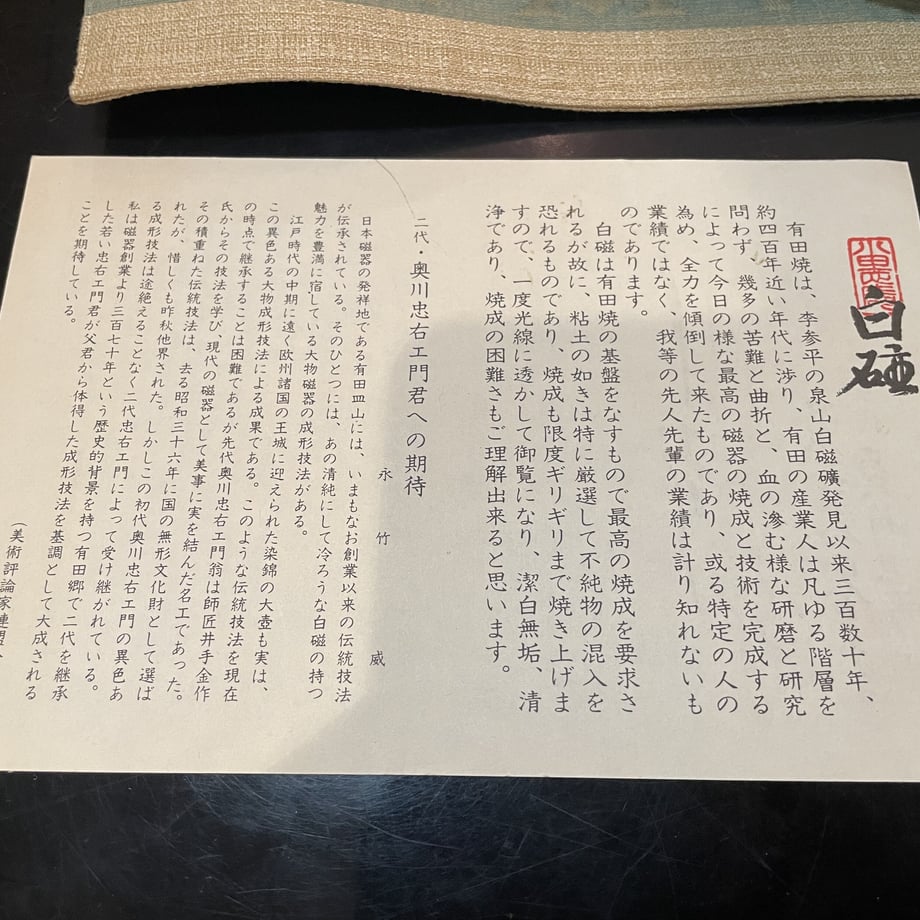 白磁
有田焼は、李参平の泉山白磁礦発見以来三百数十年、
約四百年近い年代に渉り、有田の産業人は凡ゆる階層を
問わず、幾多の苦難と曲折と、血の滲む様な研磨と研究
によって今日の様な最高の磁器の焼成と技術を完成する
為め、全力を傾倒して来たものであり、或る特定の人の
業績ではなく、我等の先人先輩の業績は計り知れないも
のであります。
白磁は有田焼の基盤をなすもので最高の焼成を要求さ
れるが故に、粘土の如きは特に厳選して不純物の混入を
恐れるものであり、焼成も限度ギリギリまで焼き上げま
すので、一度光線に透かして御覧になり、潔白無垢、清
浄であり、焼成の困難さもご理解出来ると思います。
二代・奥川忠右エ門君への期待
永竹威
日本磁器の発祥地である有田皿山には、いまもなお創業以来の伝統技法
が伝承されている。そのひとつには、あの清純にして冷ろうな白磁の持つ
魅力を豊満に宿している大物磁器の成形技法がある。
江戸時代の中期に遠く欧州諸国の王城に迎えられた染錦の大壺も実は、
この異色ある大物成形技法による成果である。このような伝統技法を現在
の時点で継承することは困難であるが先代奥川忠右エ門翁は師匠井手金作
氏からその技法を学び、現代の磁器として美事に実を結んだ名工であった。
その積重ねた伝統技法は、去る昭和三十六年に国の無形文化財として選ば
れたが、惜しくも昨秋他界された。しかしこの初代奥川忠右エ門の異色あ
る成形技法は途絶えることなく二代忠右エ門によって受け継がれている。
私は磁器創業より三百七十年という歴史的背景を持つ有田郷で二代を継承
した若い忠右エ門君が父君から体得した成形技法を基調として大成される
ことを期待している。
（美術評論家連盟